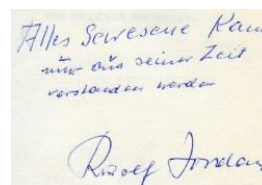 Alles Gewesene kann
nur aus seiner Zeit
verstanden werden
Rudolf Jordan